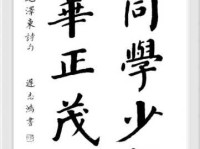 同學少
華正茂
澤東詩句
志鴻書